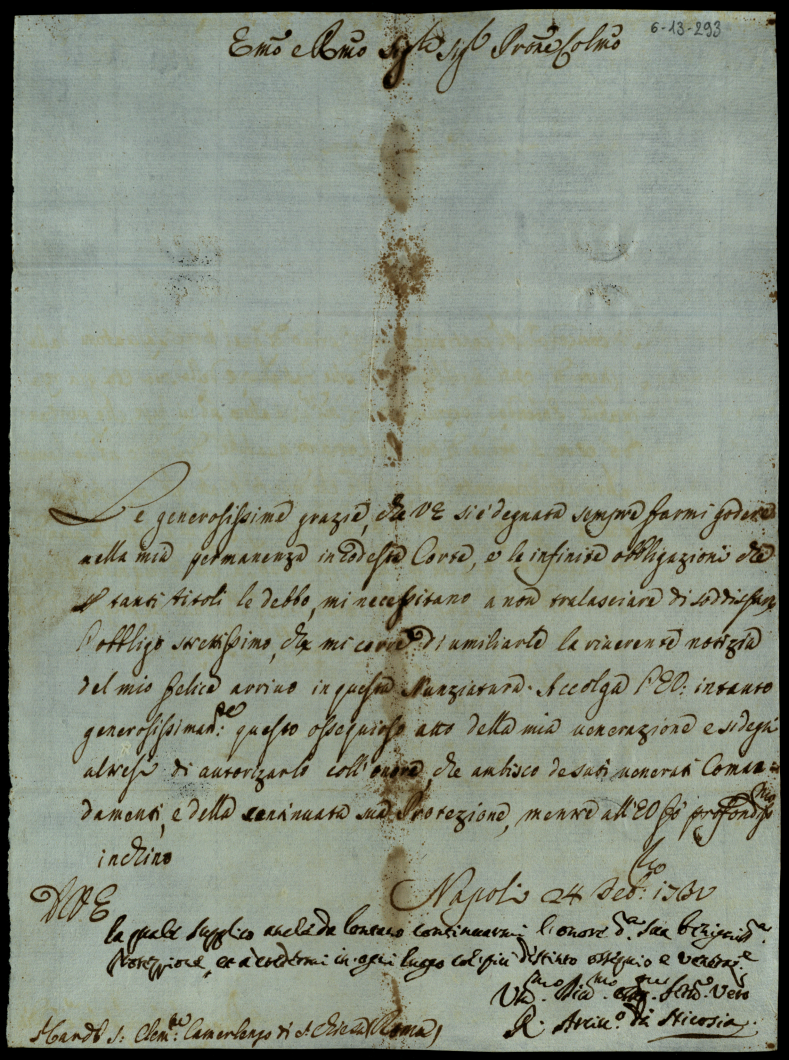 6-13-293
Emo e Rmo Sigre Sigr Prone Colmo
Le generosissime grazie, che VE si è degnata sempre farmi godere
nella mia permanenza in codesta Corte, e le infinite obbligazioni che
p tanti titoli le debbo, mi necessitano a non tralasciare di soddisfare
l'obbligo strettissimo, che mi corre di umiliarle la riverente notizia
del mio felice arrivo in questa Nunziatura. Accolga l'EV: intanto
generosissimam:te questo ossequioso atto della mia venerazione e si degni
altresì di autorizarlo coll'onore, che ambisco de suoi venerati Coman=
damenti, e della continuata sua Protezione, mentre all'EV fò profondissmo
inchino
DVE Napoli 24
la quale supplico anche da lontano continuarmi l'onore d.a sua benigniss.a
Protezzione, et a credermi in ogni luogo col più distinto ossequio e veneraz.e
Um.mo Di.mo Ser.re Vero
R. Arciv.o di Nicosia
S: Clem.te Camerlengo di S. Chiesa (Roma)